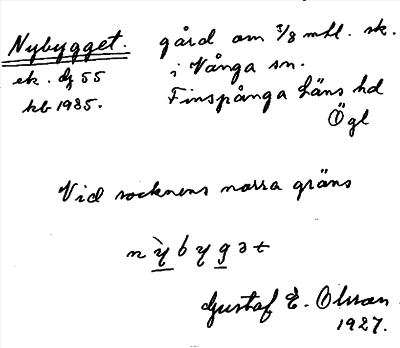 Nybygget. gård om 3/8 mtl. sk.
ek. bl 55 i Vånga sn.
kb 1935. Finspånga läns hd
Ögl
Vid socknens norra gräns
nỳbygət
Gustaf E. Olsson
1927.